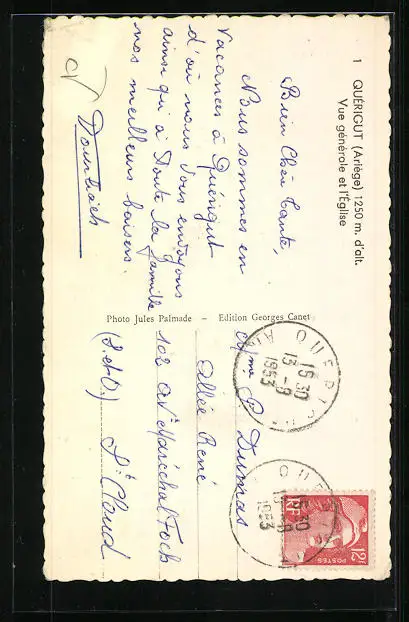 1 QUÉRIGUT (Ariège) 1250 m. d'alt.
Vue générale et l'Église
Bien Chère Tante,
Nous sommes en
vacances à Quérigut
d'où nous vous envoyons
ainsi qu'à toute la famille
nos meilleurs baisers.
Photo Jules Palmade – Edition Georges Canet
Mme P. Dumas
Allée René
102 Av Maréchal Foch
St Cloud
(S.et.O)
QUERIGUT
15 30
13 - 9
1953
15 30
1953
RF
12F
POSTES